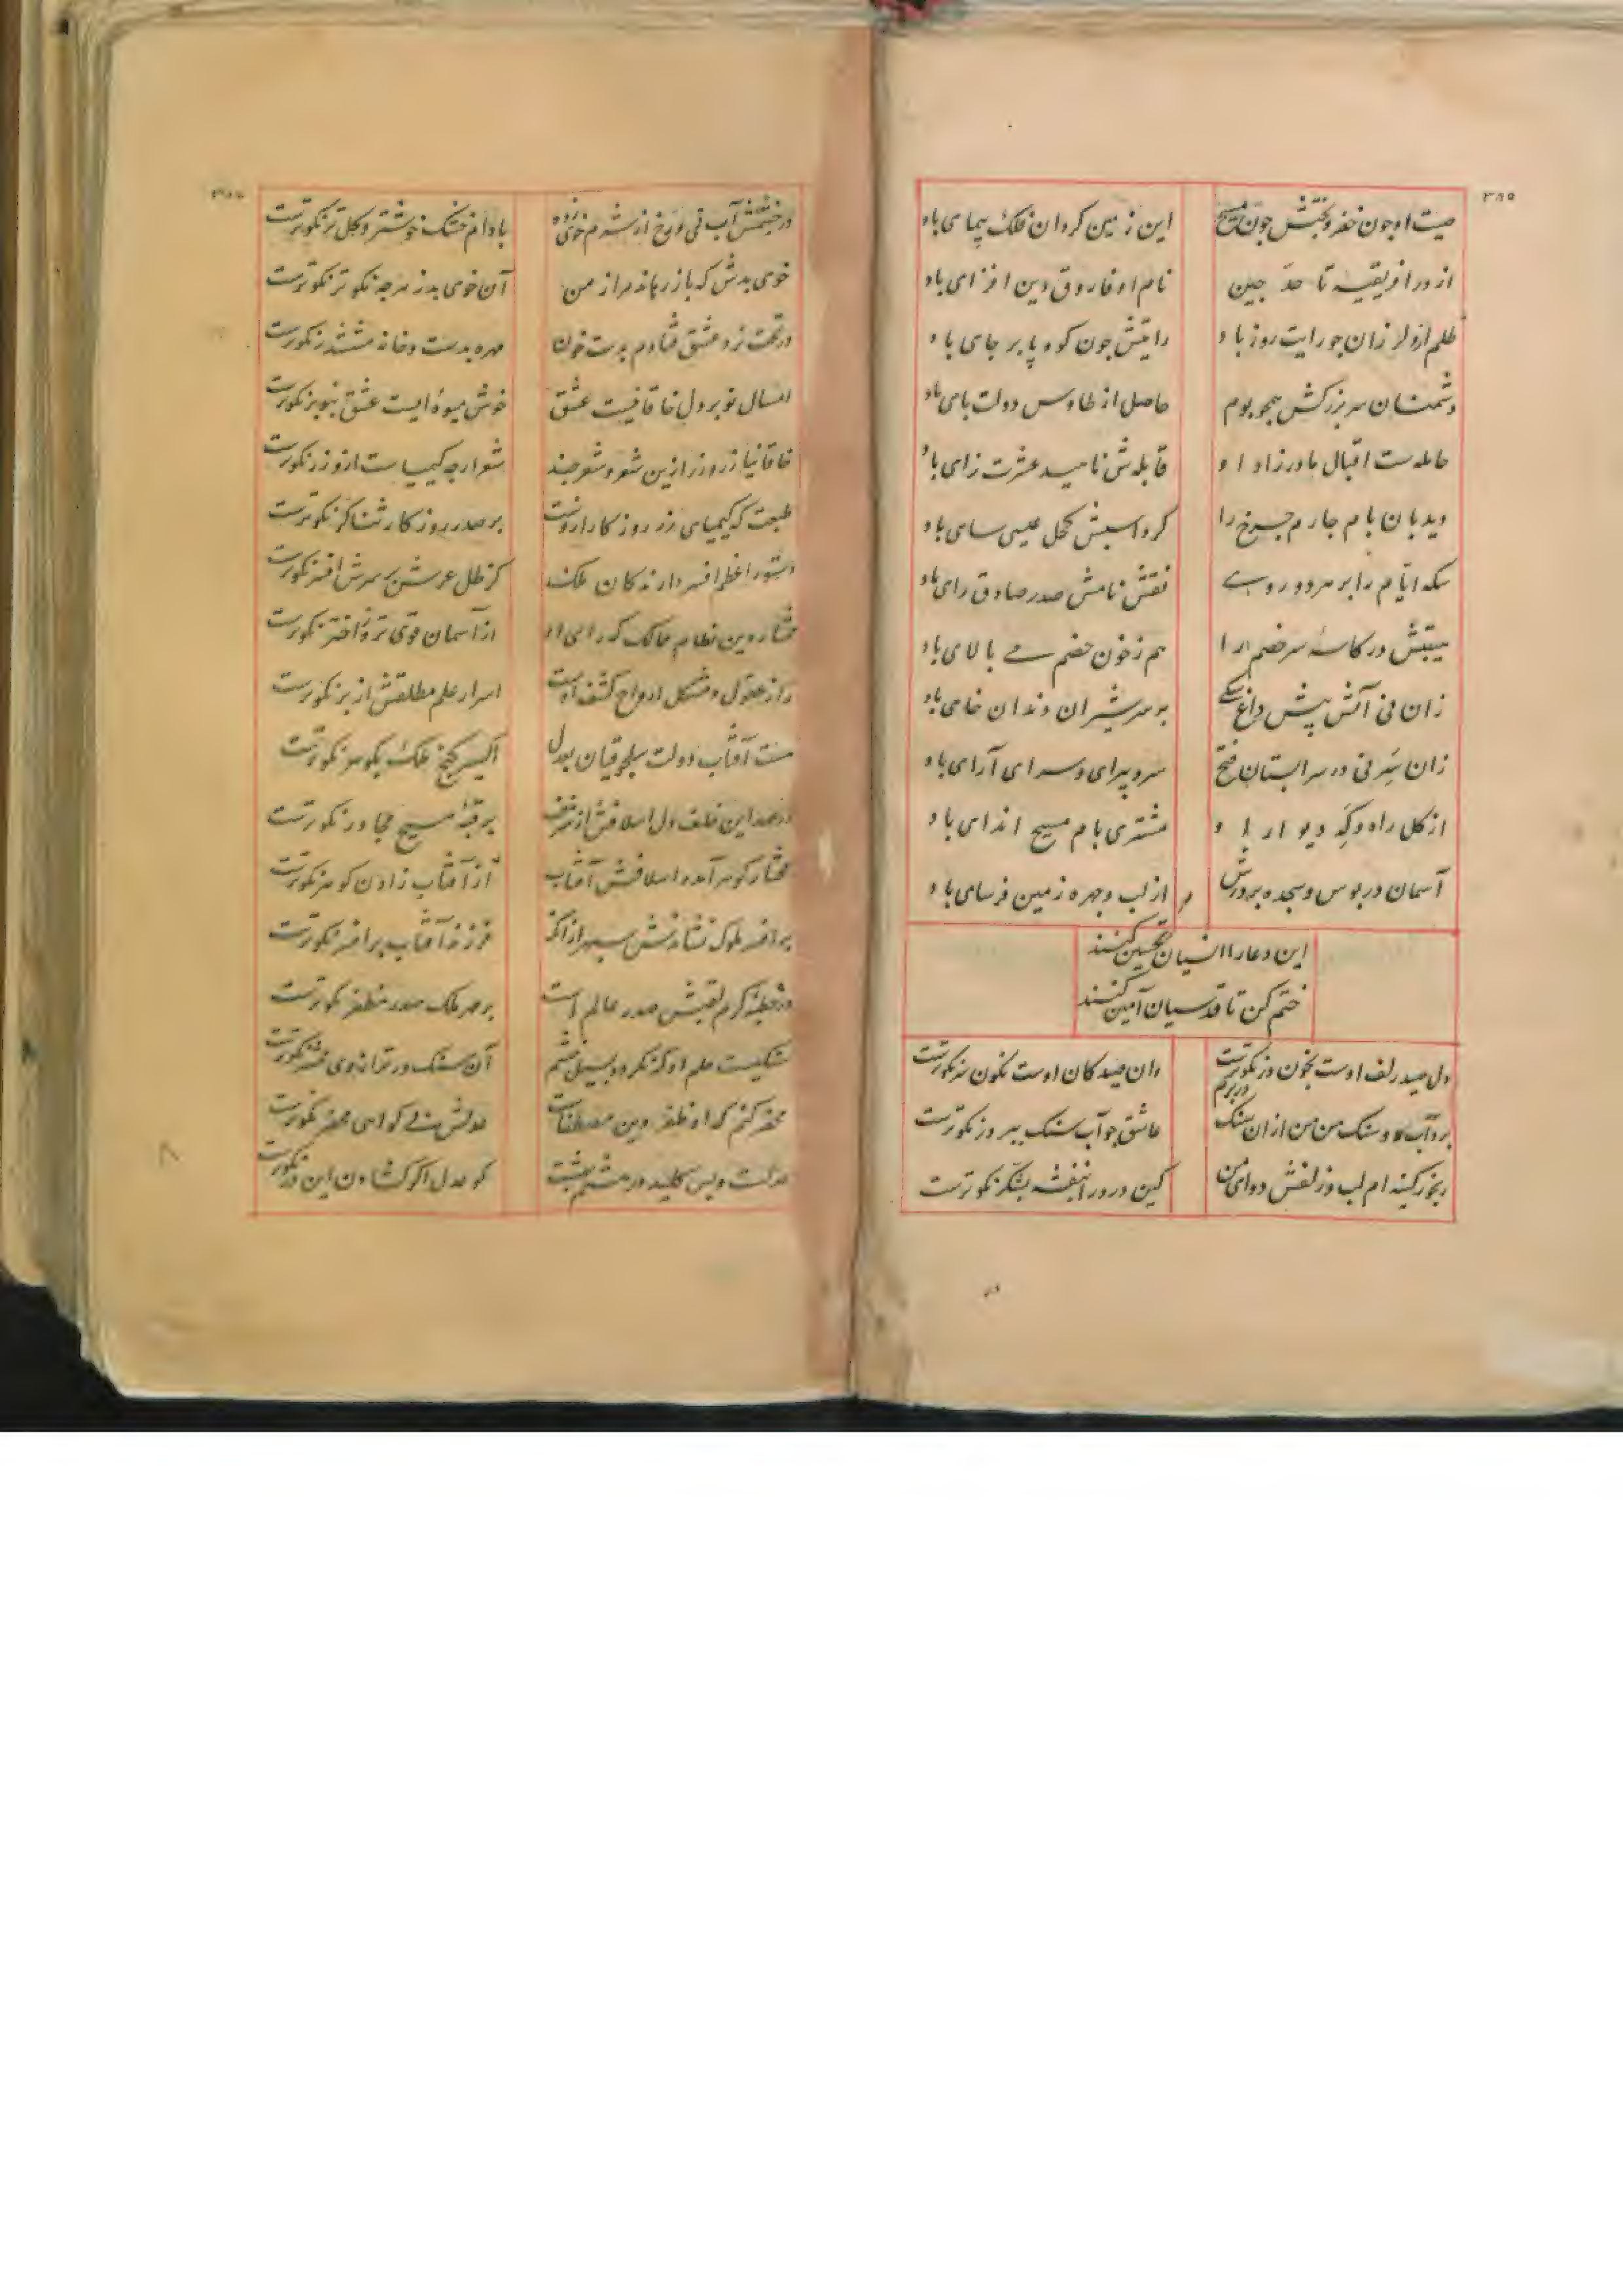 ۳۸۵
صیت او چون خضر و بختش چون مسیح این زمین کردان فلک پیمای باد
از در افریقیه تا حد جین نام او فاروق دین افزای باد
ظلم ازو لرزان جو رایت روز باد رایتش جون کوه پا بر جای باد
دشمنان سر بزرکش همجو بوم حاصل از طاوس دولت بای باد
حامله ست اقبال مادرزاد او قابله ش ناهید عشرت زای باد
دیدبان بام جارم جرخ را کرد اسبش کحل عیسی سای باد
سکه ایام را بر هر دو روی نقش نامش صدر صادق رای باد
هیبتش در کاسهٔ سر خصم را هم ز خون خصم می بالای باد
زان نی آتش پیش داغ سکی بر سر شیران دندان خای باد
زان سر نی در سرابستان فتح سرو پیرای و سرای آرای باد
از کل راه و که دیوار او مشتری بام مسیح اندای باد
آسمان در بوس و سجده بر درش از لب و جهره زمین فرسای باد
این دعا را انسیان تحسین کنند
ختم کن تا قدسیان آمین کنند
دل صید زلف اوست بخون در نکوترست وان صید کان اوست نکون سر نکوترست
برد آب و سنک من من از آن سنک در برم عاشق جو آب سنک ببر در نکوترست
رنجور کینه ام لب و زلفش دوای من کین درد را بنفشه بشکر نکوترست
در جشمش آب نی و رخ از شرم خوی زده بادام خشک خوشتر و کل تر نکوترست
خوی بدش که بازرهاند مرا ز من آن خوی بد ز هرجه نکوتر نکوترست
در تخت نرد عشق فتادم بدست خون مهره بدست و خانه مششدر نکوترست
امسال نوبر دل خاقانیست عشق خوش میوه ایست عشق بنوبر نکوترست
خاقانیا زر و زر ازین شعر و شعر جند شعر ارجه کیمیاست ازو زر نکوترست
طبعت که کیمیای زر روزکار ازوست بر صدر روزکار ثناکر نکوترست
دستور اعظم افسر دارندکان ملک کز ظل عرش بر سرش افسر نکوترست
مختار دین نظام ممالک که رای او از آسمان قوی تر و ز اختر نکوترست
راز عقول و مشکل ارواح کشف اوست اسرار علم مطلقش از بر نکوترست
هست آفتاب دولت سلجوقیان بعدل اکسیر کنج ملک بکوهر نکوترست
در عهد این خلف دل اسلافش از شرف بر قبهٔ مسیح مجاور نکوترست
مختار کوهر آمد و اسلافش آفتاب از آفتاب زادن کوهر نکوترست
بر افسر ملوک نشاندش سپهر از آنک فرزند آفتاب بر افسر نکوترست
در خطبهٔ کرم لقبش صدر عالم است بر مهر ملک صدر مظفر نکوترست
سنکیست حلم او که نکردد بسیل خشم آن سنک در ترازوی محشر نکوترست
محضر کنم که او ظفر دین مصطفاست عدلش بزی کواهی محضر نکوترست
عدلست و بس کلید در هشتم بهشت کو عدل اکر کشادن این در نکوترست